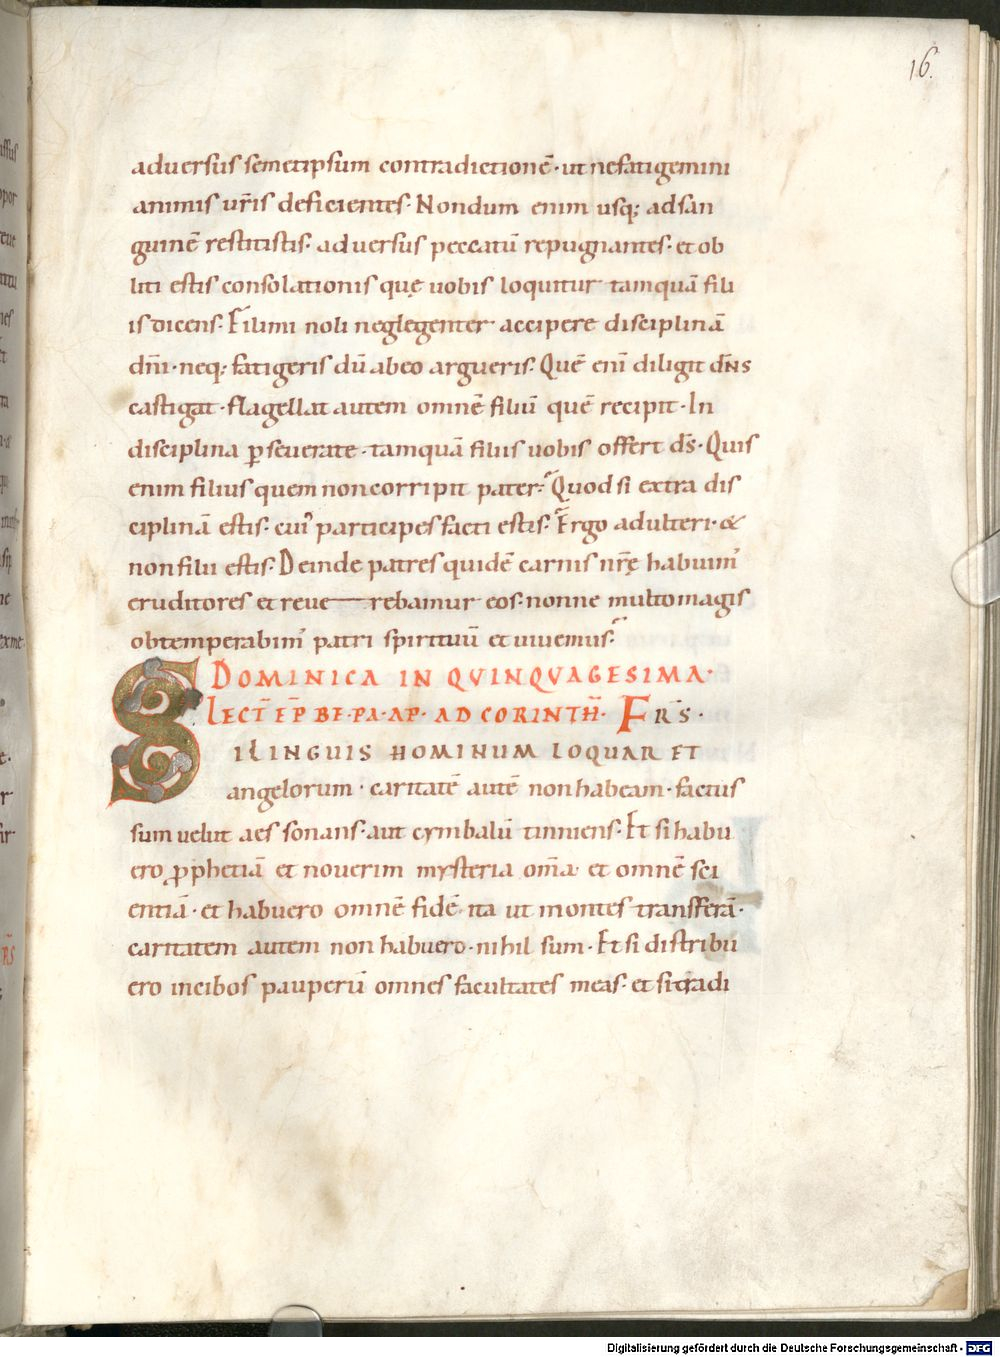 16.
aduersus semetipsum contradictionē· ut nefatigemini
animis ur̄is deficientes· Nondum enim usq; adsan
guinē restitistis· aduersus peccatū repugnantes· et ob
liti estis consolationis quę uobis loquitur tamquā fili
is dicens· Filimi noli neglegenter accipere disciplinā
dn̄i· neq; fatigeris dū abeo argueris· Quē eni diligit dn̄s
castigat· flagellat autem omnē filiū quē recipit· In
disciplina ꝑseuerate· tamquā filiis uobis offert ds̄· Quis
enim filius quem noncorripit pater· Quod si extra dis
ciplinā estis· cui' participes facti estis· Ergo adulteri· &
nonfilii estis· Deinde patres quidē carnis nr̄ę habuim'
eruditores et reue rebamur eos· nonne multomagis
obtemperabim' patri spirituū et uiuemus·
DOMINICA IN QVINQVAGESIMA·
LECT̄ EP̄ BE· PA· AP· AD CORINTH̄· FR̄S·
S ILINGUIS HOMINUM LOQUAR ET
angelorum· caritatē autē nonhabeam· factus
sum uelut aes sonans· aut cymbalū tinniens· Et si habu
ero ꝓphetiā et nouerim mysteria om̄a· et omnē sci
entiā· et habuero omnē fidē· ita ut montes transferā·
caritatem autem non habuero· nihil sum· Et si distribu
ero incibos pauperū omnes facultates meas· et sitradi
ssus
por
exme
R̄S
Digitalisierung gefördert durch die Deutsche Forschungsgemeinschaft - DFG